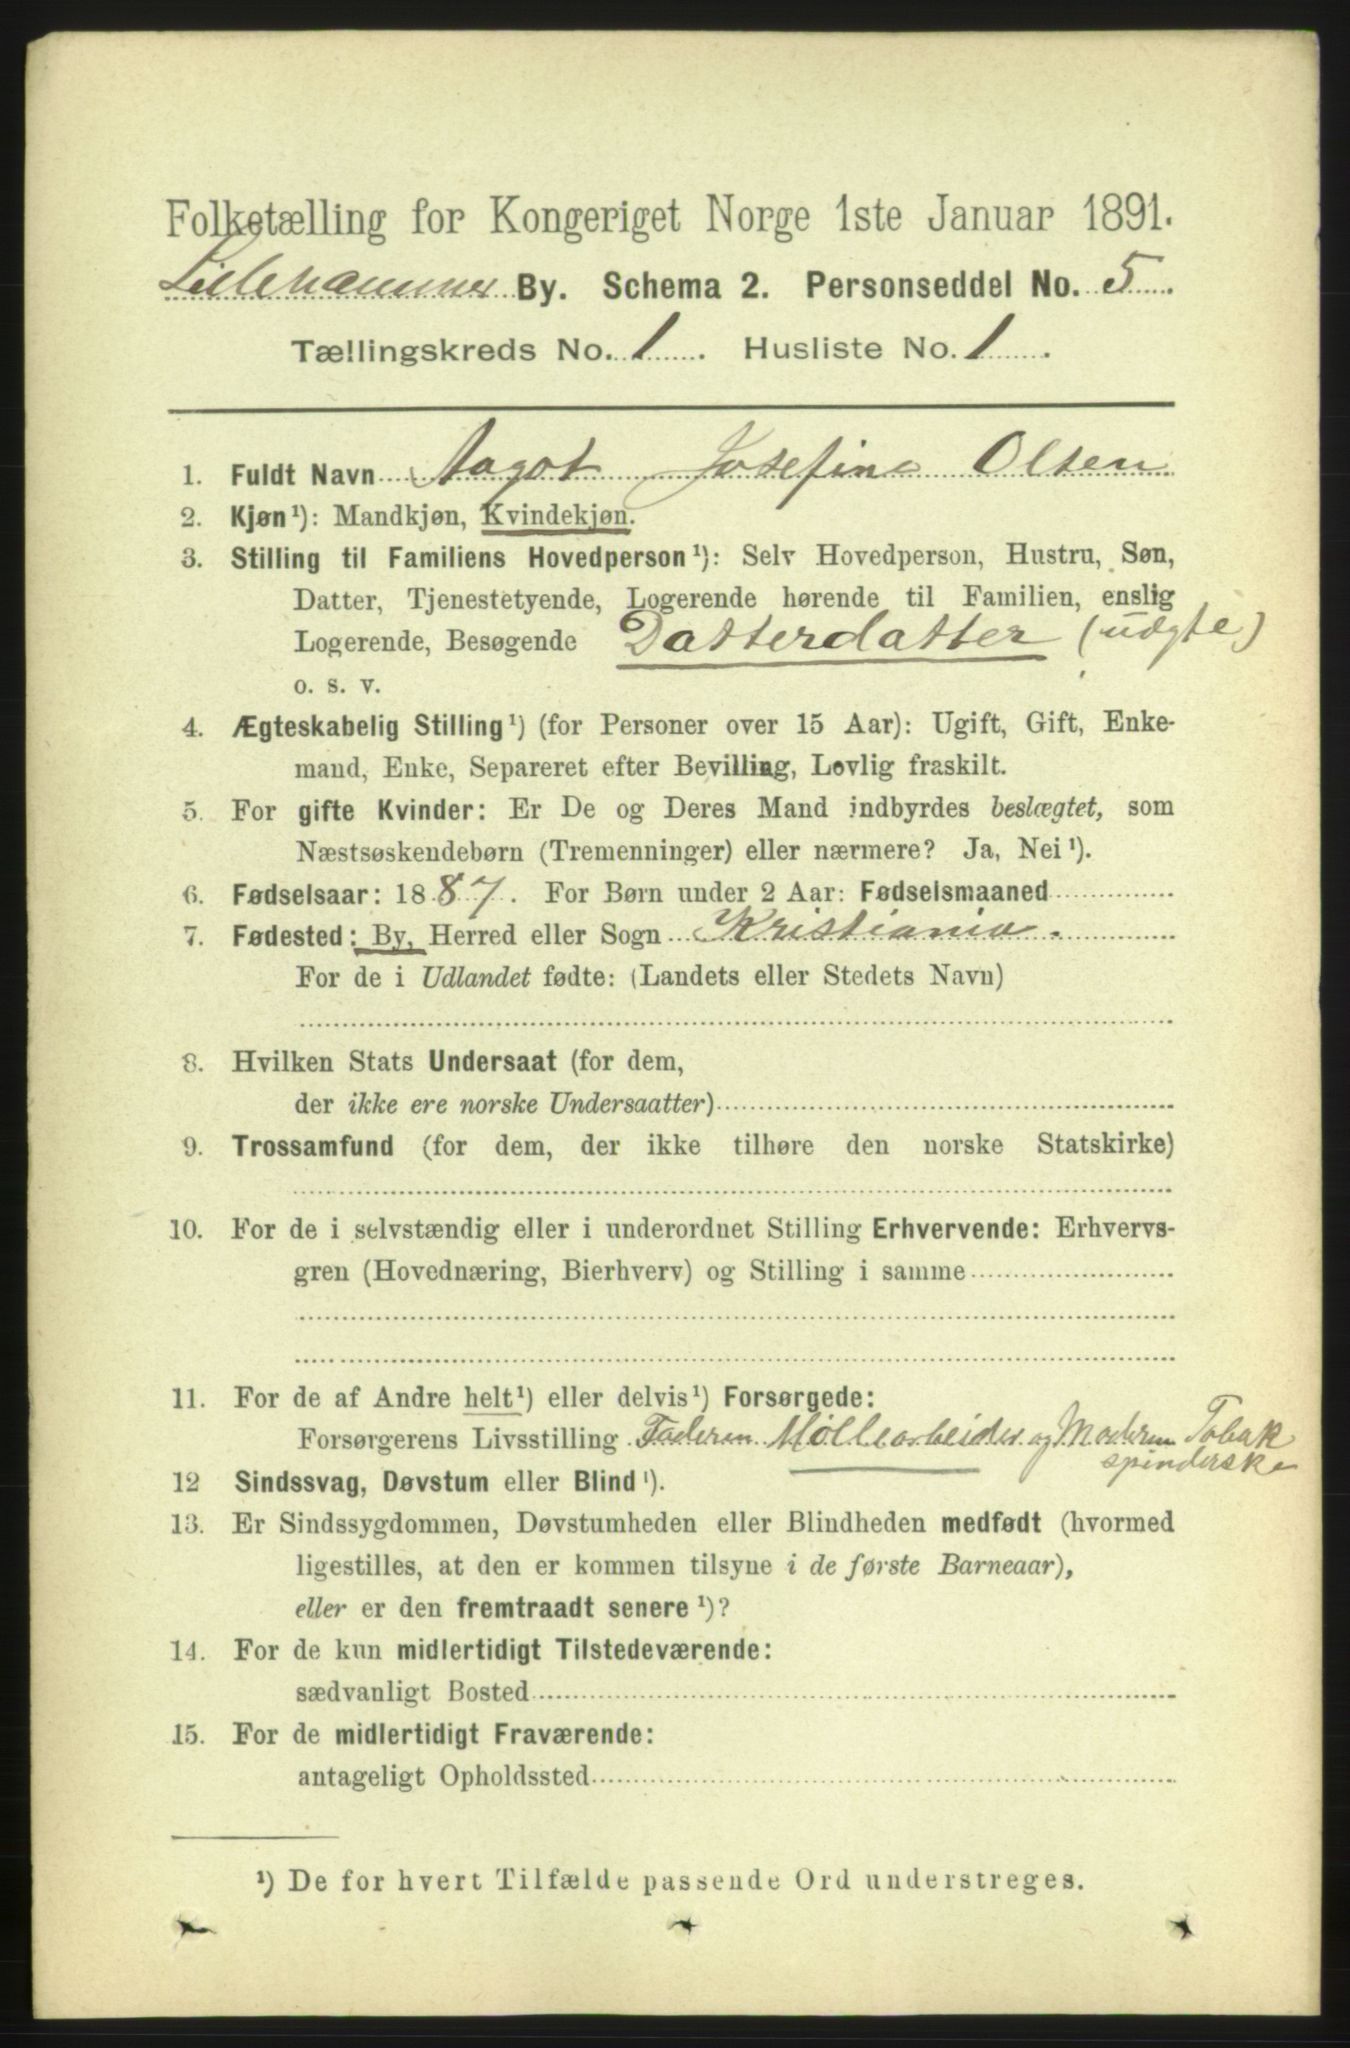 Folketælling for Kongeriget Norge 1ste Januar 1891.
Lillehammer By. Schema 2. Personseddel No. 5
Tællingskreds No. 1. Husliste No. 1.
1. Fuldt Navn Aagot Josefine Olsen
2. Kjøn¹): Mandkjøn, Kvindekjøn.
3. Stilling til Familiens Hovedperson¹): Selv Hovedperson, Hustru, Søn,
Datter, Tjenestetyende, Logerende hørende til Familien, enslig
Logerende, Besøgende Datterdatter (udgte)
o. s. v.
4. Ægteskabelig Stilling¹) (for Personer over 15 Aar): Ugift, Gift, Enke-
mand, Enke, Separeret efter Bevilling, Lovlig fraskilt.
5. For gifte Kvinder: Er De og Deres Mand indbyrdes beslægtet, som
Næstsøskendebørn (Tremenninger) eller nærmere? Ja, Nei¹).
6. Fødselsaar: 1887. For Børn under 2 Aar: Fødselsmaaned
7. Fødested: By, Herred eller Sogn Kristiania.
For de i Udlandet fødte: (Landets eller Stedets Navn)
8. Hvilken Stats Undersaat (for dem,
der ikke ere norske Undersaatter)
9. Trossamfund (for dem, der ikke tilhøre den norske Statskirke)
10. For de i selvstændig eller i underordnet Stilling Erhvervende: Erhvervs-
gren (Hovednæring, Bierhverv) og Stilling i samme
11. For de af Andre helt¹) eller delvis¹) Forsørgede:
Forsørgerens Livsstilling Faderen Møllearbeider og Moderen Tobak
spinderske
12 Sindssvag, Døvstum eller Blind¹).
13. Er Sindssygdommen, Døvstumheden eller Blindheden medfødt (hvormed
ligestilles, at den er kommen tilsyne i de første Barneaar),
eller er den fremtraadt senere¹)?
14. For de kun midlertidigt Tilstedeværende:
sædvanligt Bosted
15. For de midlertidigt Fraværende:
antageligt Opholdssted
¹) De for hvert Tilfælde passende Ord understreges.